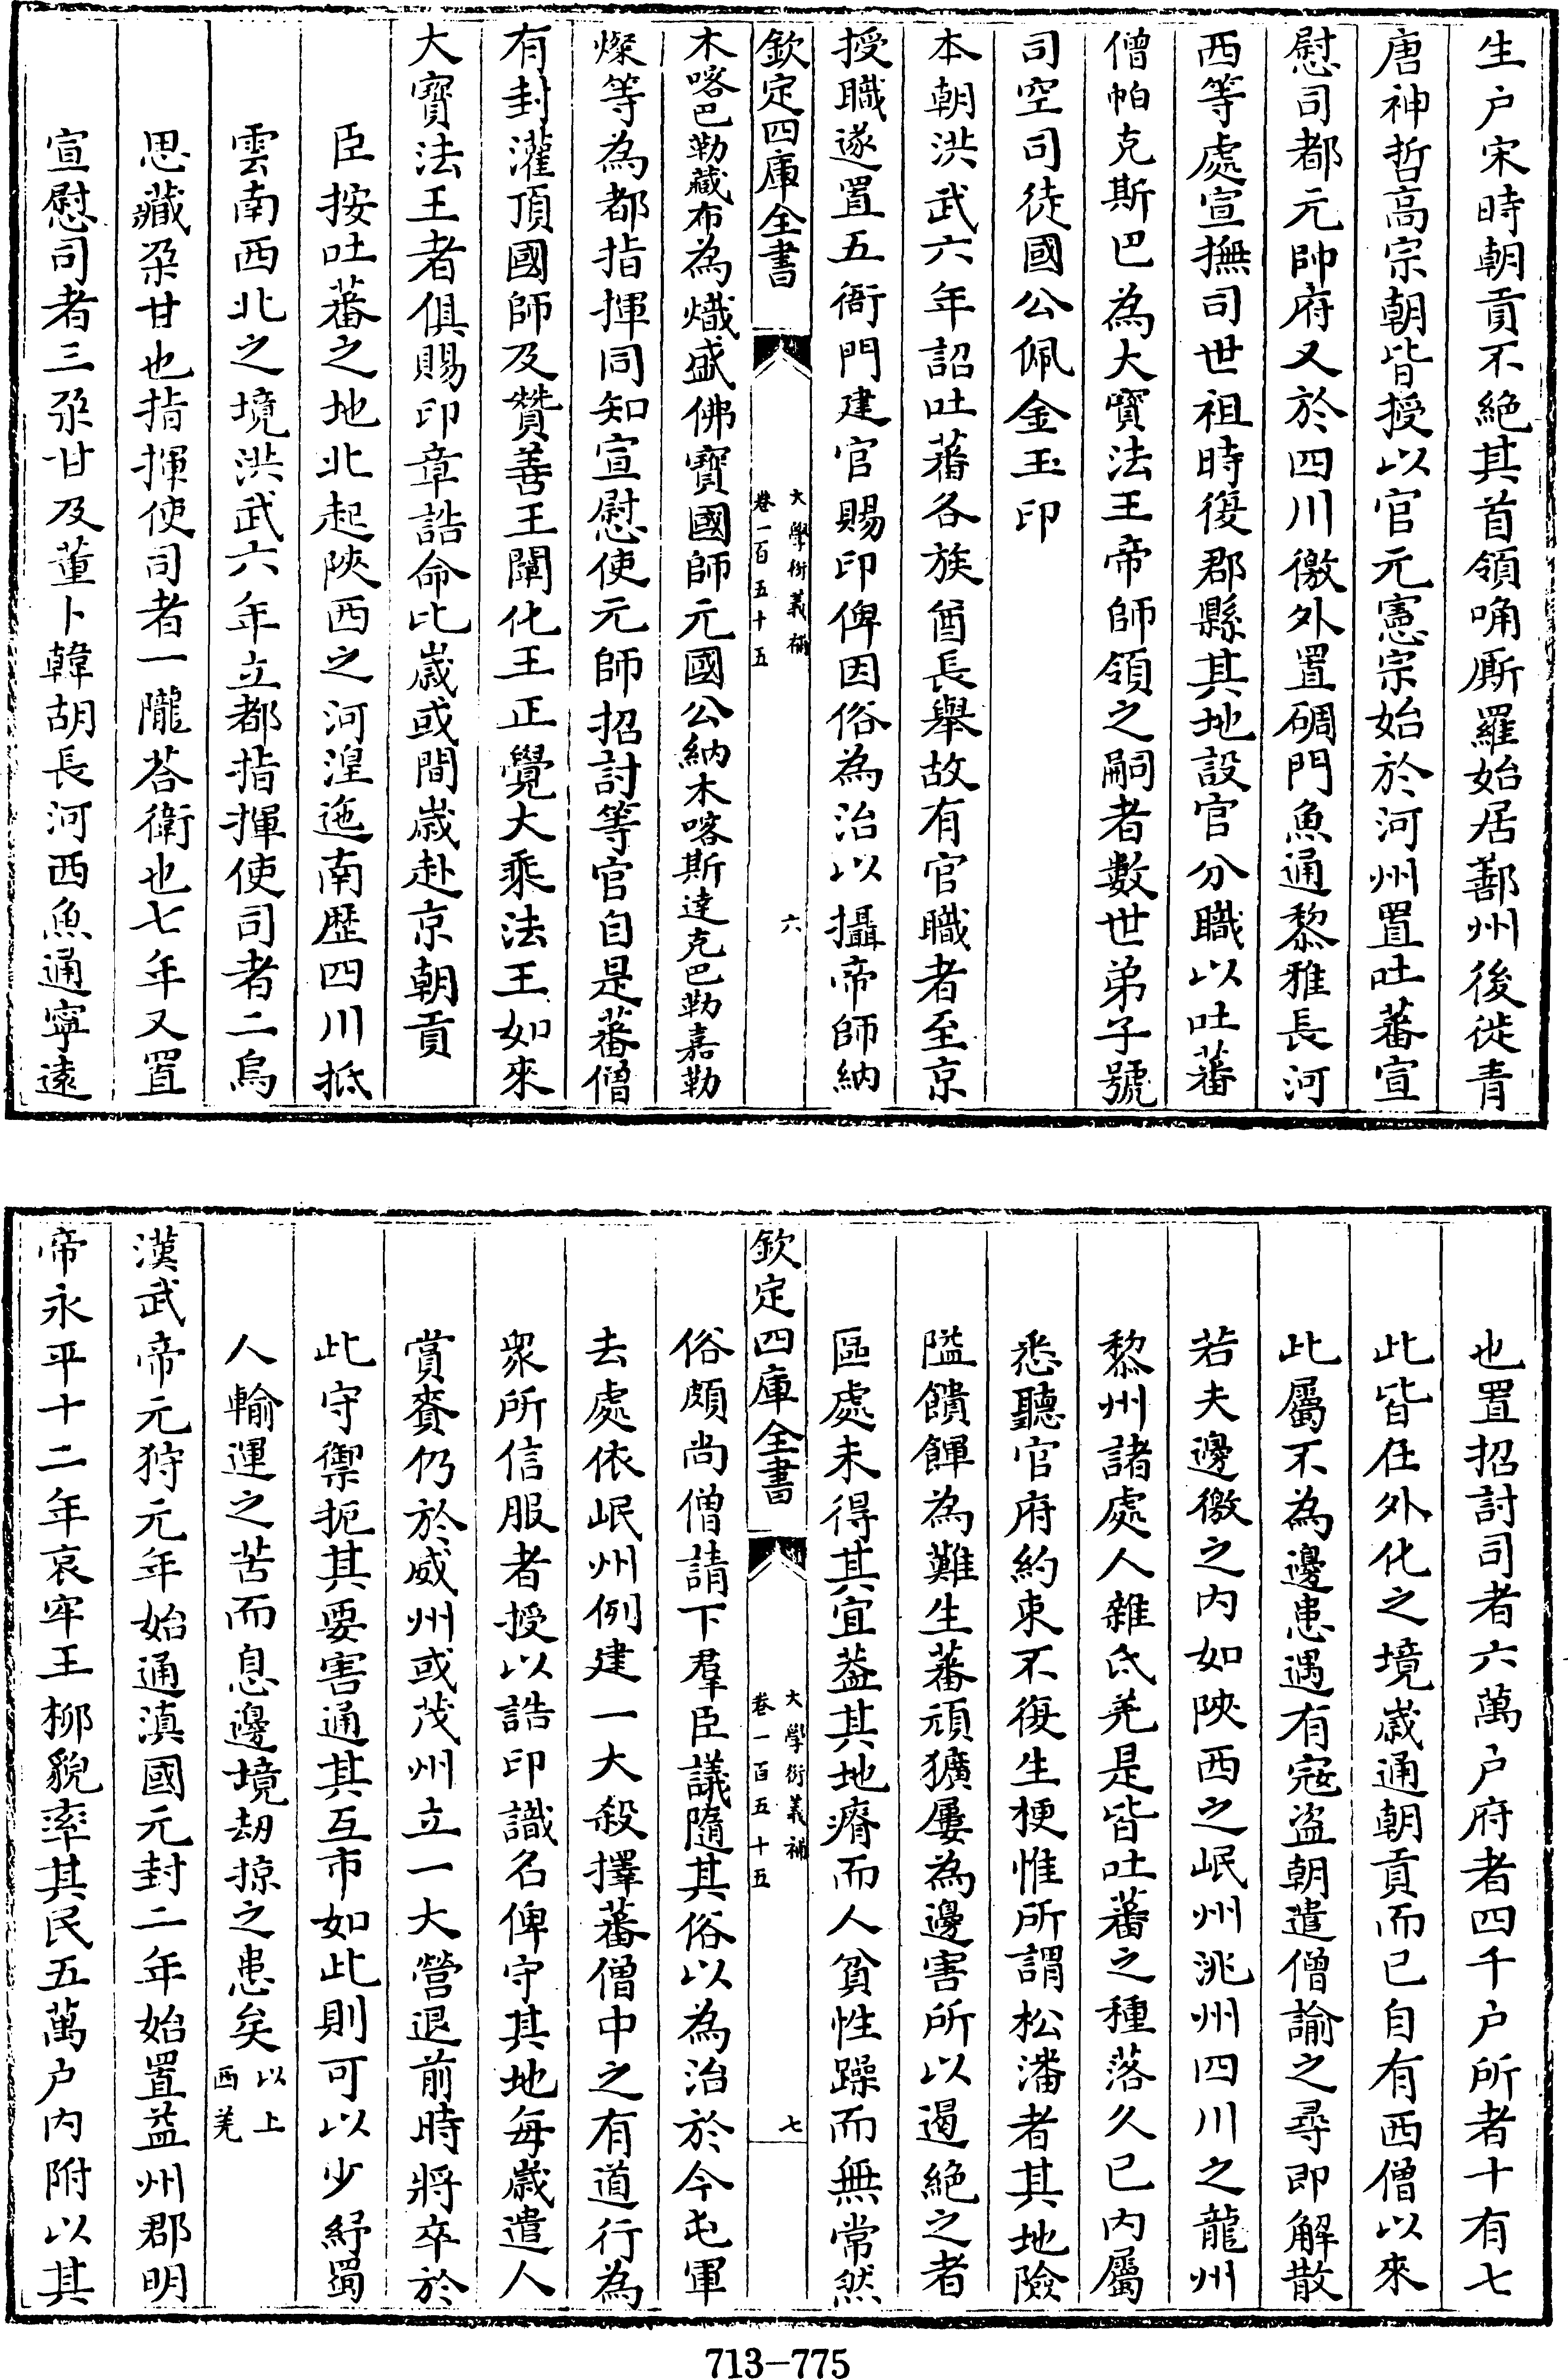 生户宋時朝貢不絶其首領唃厮羅始居鄯州後徙青
唐神哲高宗朝皆授以官元憲宗始於河州置吐蕃宣
慰司都元帥府又於四川徼外置碉門魚通黎雅長河
西等處宣撫司世祖時復郡縣其地設官分職以吐蕃
僧帕克斯巴為大寳法王帝師領之嗣者數世弟子號
司空司徒國公佩金玉印
本朝洪武六年詔吐蕃各族酋長舉故有官職者至京
授職遂置五衙門建官賜印俾因俗為治以攝帝師納
欽定四庫全書
大學衍義補
卷一百五十五
六
木喀巴勒藏布為熾盛佛寳國師元國公納木喀斯達克巴勒嘉勒
燦等為都指揮同知宣慰使元帥招討等官自是蕃僧
有封灌頂國師及贊善王闡化王正覺大乘法王如來
大寳法王者俱賜印章誥命比歲或間歲赴京朝貢
臣按吐蕃之地北起陜西之河湟迤南歴四川抵
雲南西北之境洪武六年立都指揮使司者二烏
思藏朶甘也指揮使司者一隴荅衛也七年又置
宣慰司者三朶甘及董卜韓胡長河西魚通寧遠
也置招討司者六萬户府者四千户所者十有七
此皆在外化之境歲通朝貢而已自有西僧以來
此屬不為邊患遇有寇盜朝遣僧諭之尋即解散
若夫邊徼之内如陜西之岷州洮州四川之龍州
黎州諸處人雜氐羌是皆吐蕃之種落久已内屬
悉聽官府約束不復生梗惟所謂松潘者其地險
隘饋餫為難生蕃頑獷屢為邊害所以遏絶之者
區處未得其宜葢其地瘠而人貧性躁而無常然
欽定四庫全書
大學衍義補
卷一百五十五
七
俗頗尚僧請下羣臣議隨其俗以為治於今屯軍
去處依岷州例建一大殺擇蕃僧中之有道行為
衆所信服者授以誥印識名俾守其地每歲遣人
賞賚仍於威州或茂州立一大營退前時將卒於
此守禦扼其要害通其互市如此則可以少紓蜀
人輸運之苦而息邊境刼掠之患矣以上
西羌
漢武帝元狩元年始通滇國元封二年始置益州郡明
帝永平十二年哀牢王柳貌率其民五萬户内附以其
713-775